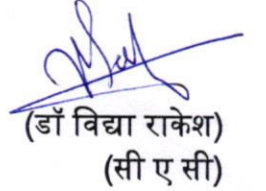 (डॉ विद्या राकेश)
(सी ए सी)